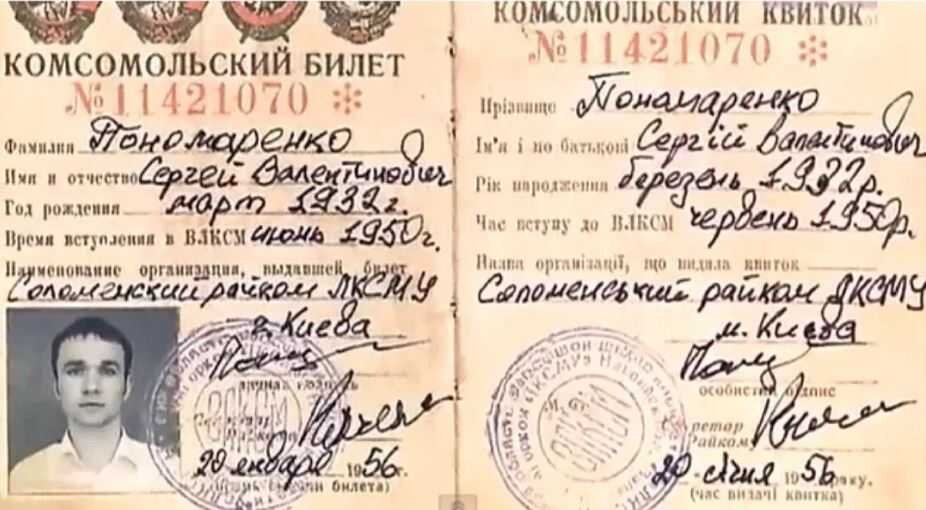 КОМСОМОЛЬСКИЙ БИЛЕТ
№11421070
Фамилия Пономаренко
Имя и отчество Сергей Валентинович
Год рождения март 1932 г.
Время вступления в ВЛКСМ июнь 1950 г.
Наименование организации, выдавшей билет
Соломенский райком ЛКСМУ
г. Киева
20 января 1956 г.
билета)
ВЛКСМ
КОМСОМОЛЬСЬКИЙ КВИТОК
№11421070
Прізвище Пономаренко
Ім'я і по батькові Сергій Валентинович
Рік народження березень 1932 р.
Час вступу до ВЛКСМ червень 1950 р.
Назва організації, що видала квиток
Соломенський райком ЛКСМУ
м. Києва
особистий підпис
Райкому
20 січня 1956 року.
(час видачі квитка)